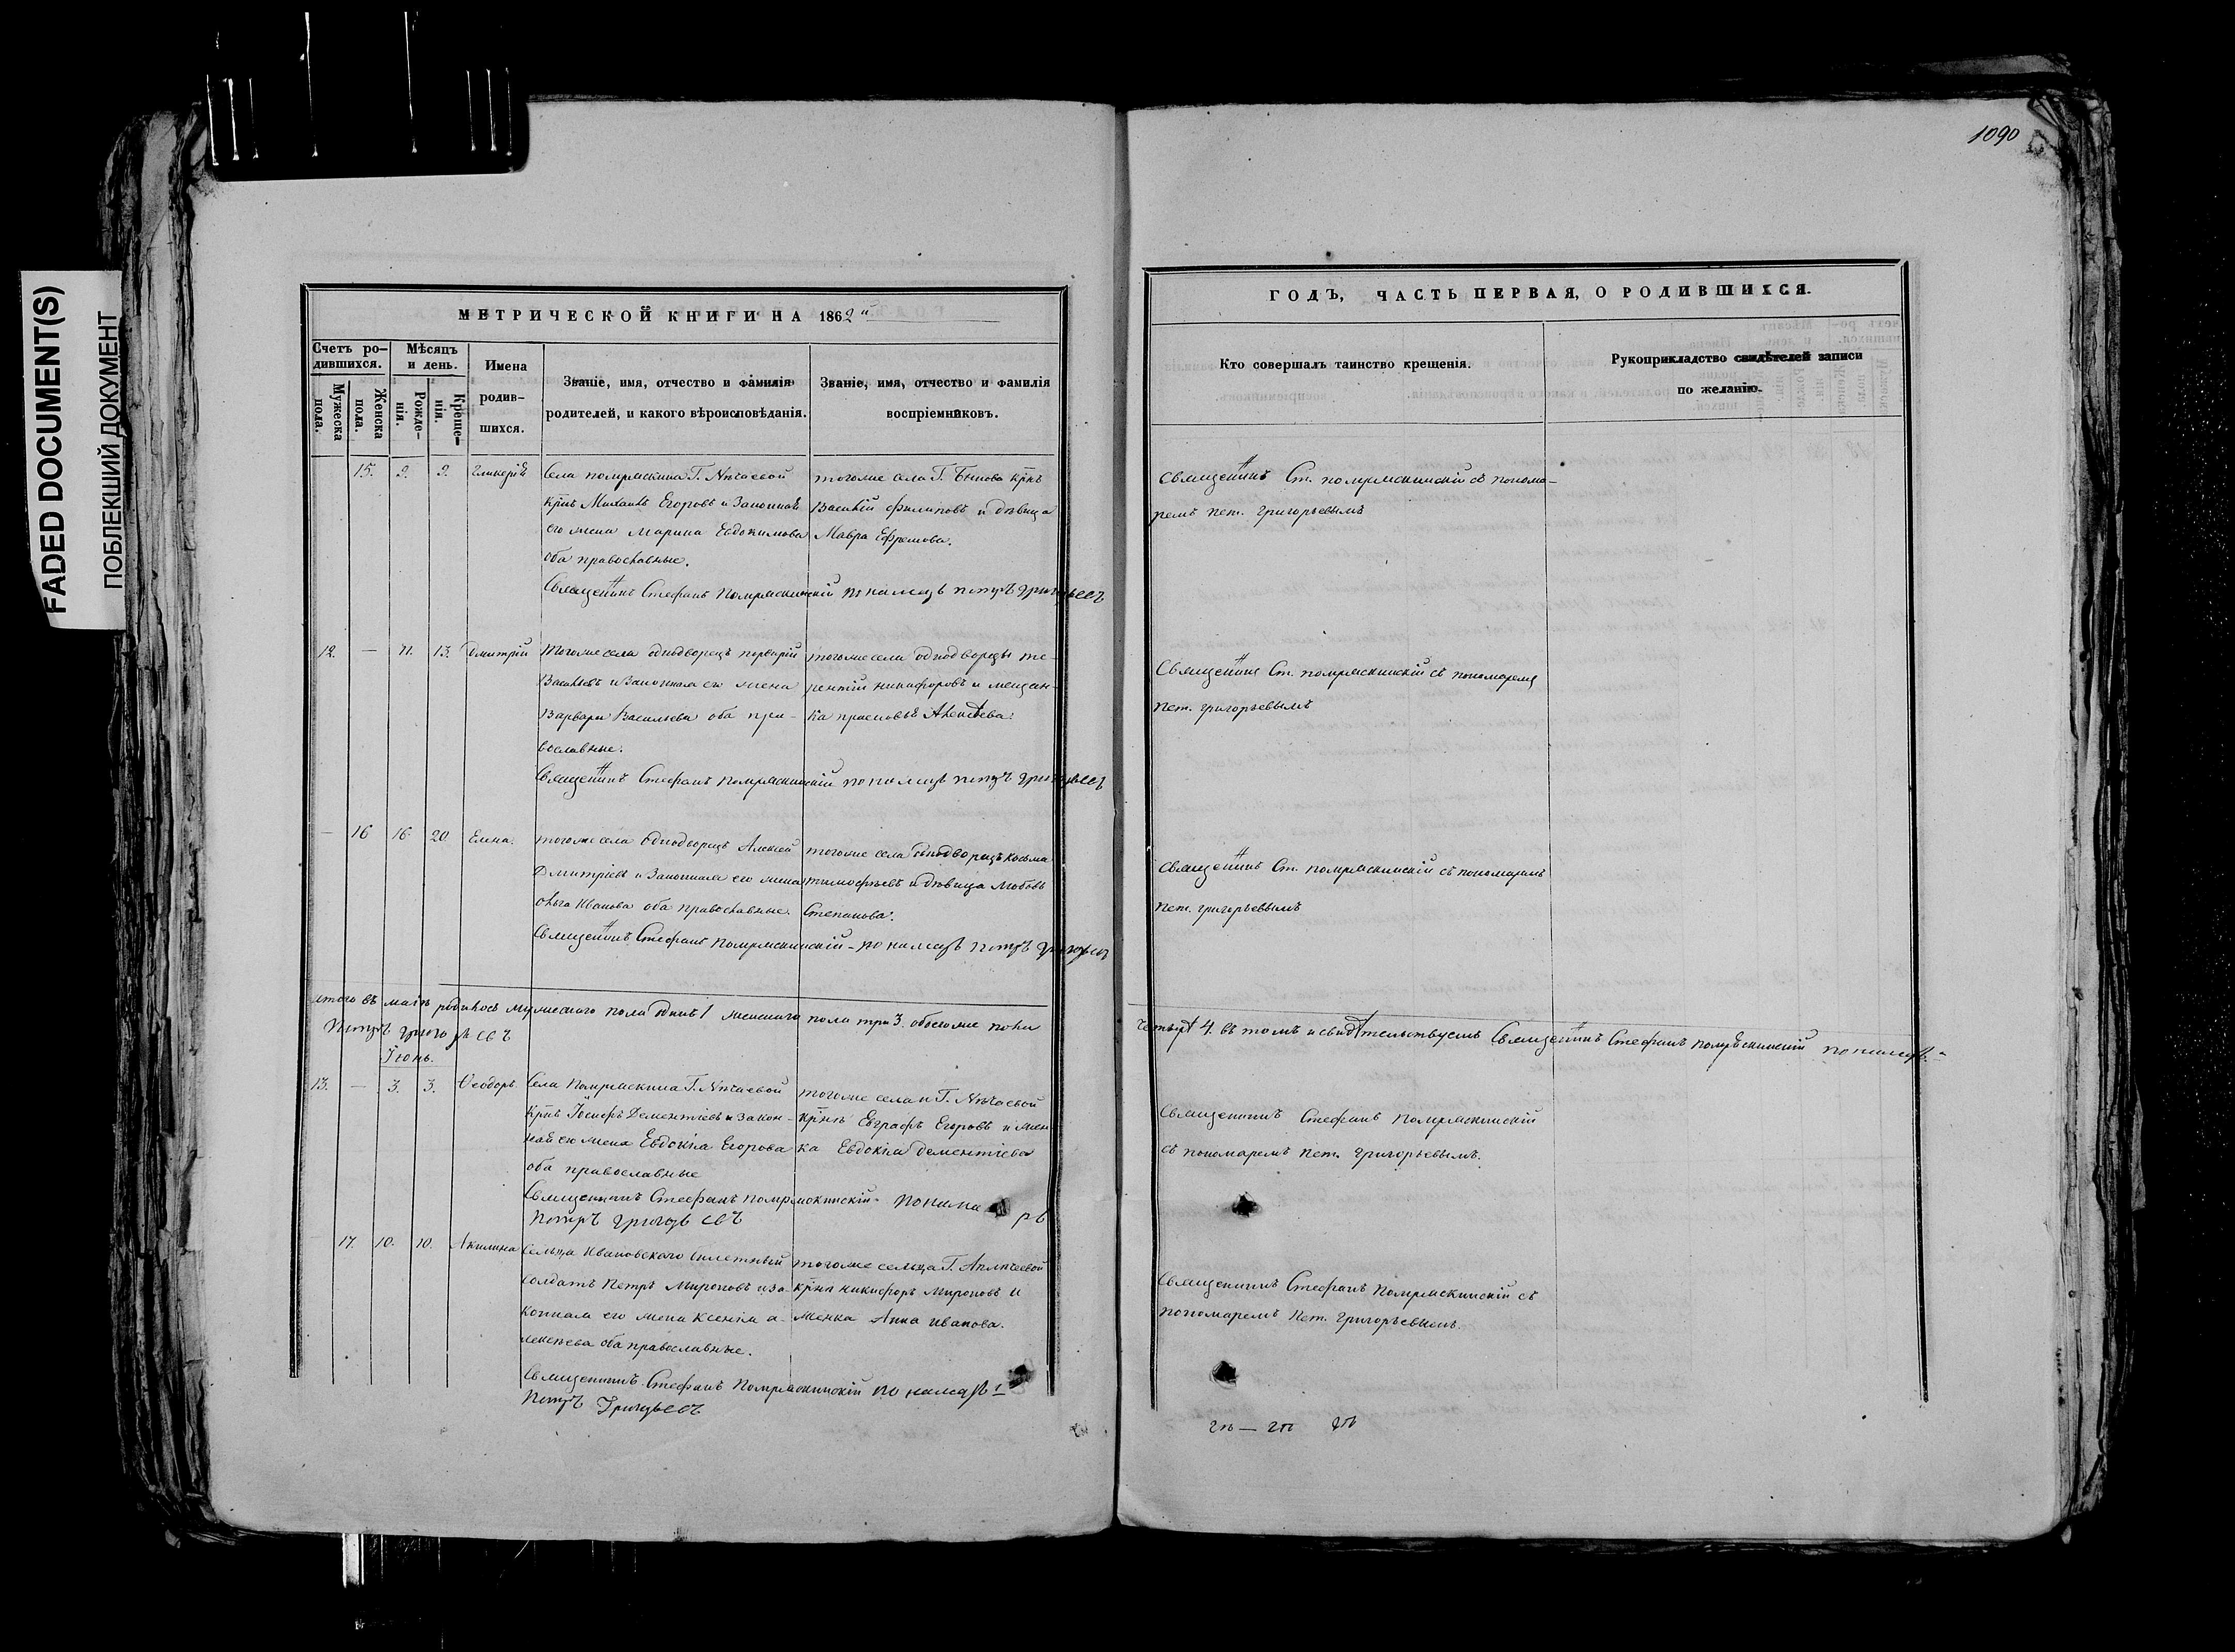 1090
FADED DOCUMENT(S)
ПОБЛЕКШИЙ ДОКУМЕНТ
МЕТРИЧЕСКОЙ КНИГИ НА 1862й
Счетъ ро-
дившихся.
Мужеска пола.
Женска пола.
Мѣсяцъ
и день.
Рожде-
нія.
Креще-
нія.
Имена
родив-
шихся.
Званіе, имя, отчество и фамилія
родителей, и какого вѣроисповѣданія.
Званіе, имя, отчество и фамилія
воспріемниковъ.
ГОДЪ, ЧАСТЬ ПЕРВАЯ, О РОДИВШИХСЯ.
Кто совершалъ таинство крещенія.
Рукоприкладство свидѣтелей записи
по желанію.
15. 9. 9. Гликерія
Села Помряскина Г. Нѣчаевой
крнъ Михаилъ Егоровъ и Законная
его жена Марина Евдокимова
оба православные.
Священникъ Стефанъ Помряскинскій Пономарь Петръ Григорьевъ
тогоже села Г. Быкова крнъ
Василій Филиповъ и дѣвица
Мавра Ефремова.
Священникъ Ст. Помряскинскій съ понома-
ремъ Пет. Григорьевымъ
12. — 11. 13. Дмитрій
Тогоже села однодворецъ
Васильевъ и Законная его жена
Варвара Васильева оба пра-
вославные.
Священникъ Стефанъ Помряскинскій Пономарь Петръ Григорьевъ
тогоже села однодворецъ те-
рентій Никифоровъ и мещан-
ка
Священникъ Ст. Помряскинскій съ пономаремъ
Пет. Григорьевымъ
— 16 16. 20. Елена.
тогоже села Однодворецъ Алексей
Дмитріевъ и Законная его жена
Ольга Иванова оба православные.
Священникъ Стефанъ Помряскинскій — Пономарь Петръ Григорьевъ
тогоже села однодворецъ Косьма
Тимофѣевъ и дѣвица Любовь
Степанова.
Священникъ Ст. Помряскинскій съ пономаремъ
Пет. Григорьевымъ
итого въ маіѣ родилось мужескаго пола одинъ 1 женскаго пола три 3. обоегоже пола
четыре 4. въ томъ и свидѣтельствуемъ Священникъ Стефанъ Помряскинскій пономарь
Петръ Григорьевъ
Іюнь.
13. — 3. 3. Ѳеодоръ.
Села Помряскина Г. Нѣчаевой
крнъ Іосифъ Дементіевъ и закон-
ная его жена Евдокія Егорова
оба православные
Священникъ Стефанъ Помряскинскій Пономарь
Петръ Григорьевъ
тогоже села и Г. Нѣчаевой
крнъ Евграфъ Егоровъ и жен-
ка Евдокія Дементіева
Священникъ Стефанъ Помряскинскій
съ пономаремъ Пет. Григорьевымъ.
17. 10. 10. Акилина
Сельца Ивановскаго билетный
солдатъ Петръ Мироновъ и за-
конная его жена Ксенія а-
лексѣева оба православные.
Священникъ Стефанъ Помряскинскій Пономарь
Петръ Григорьевъ
тогоже сельца Г.
крнъ Никифоръ Мироновъ и
женка Анна Иванова.
Священникъ Стефанъ Помряскинскій съ
пономаремъ Пет. Григорьевымъ.